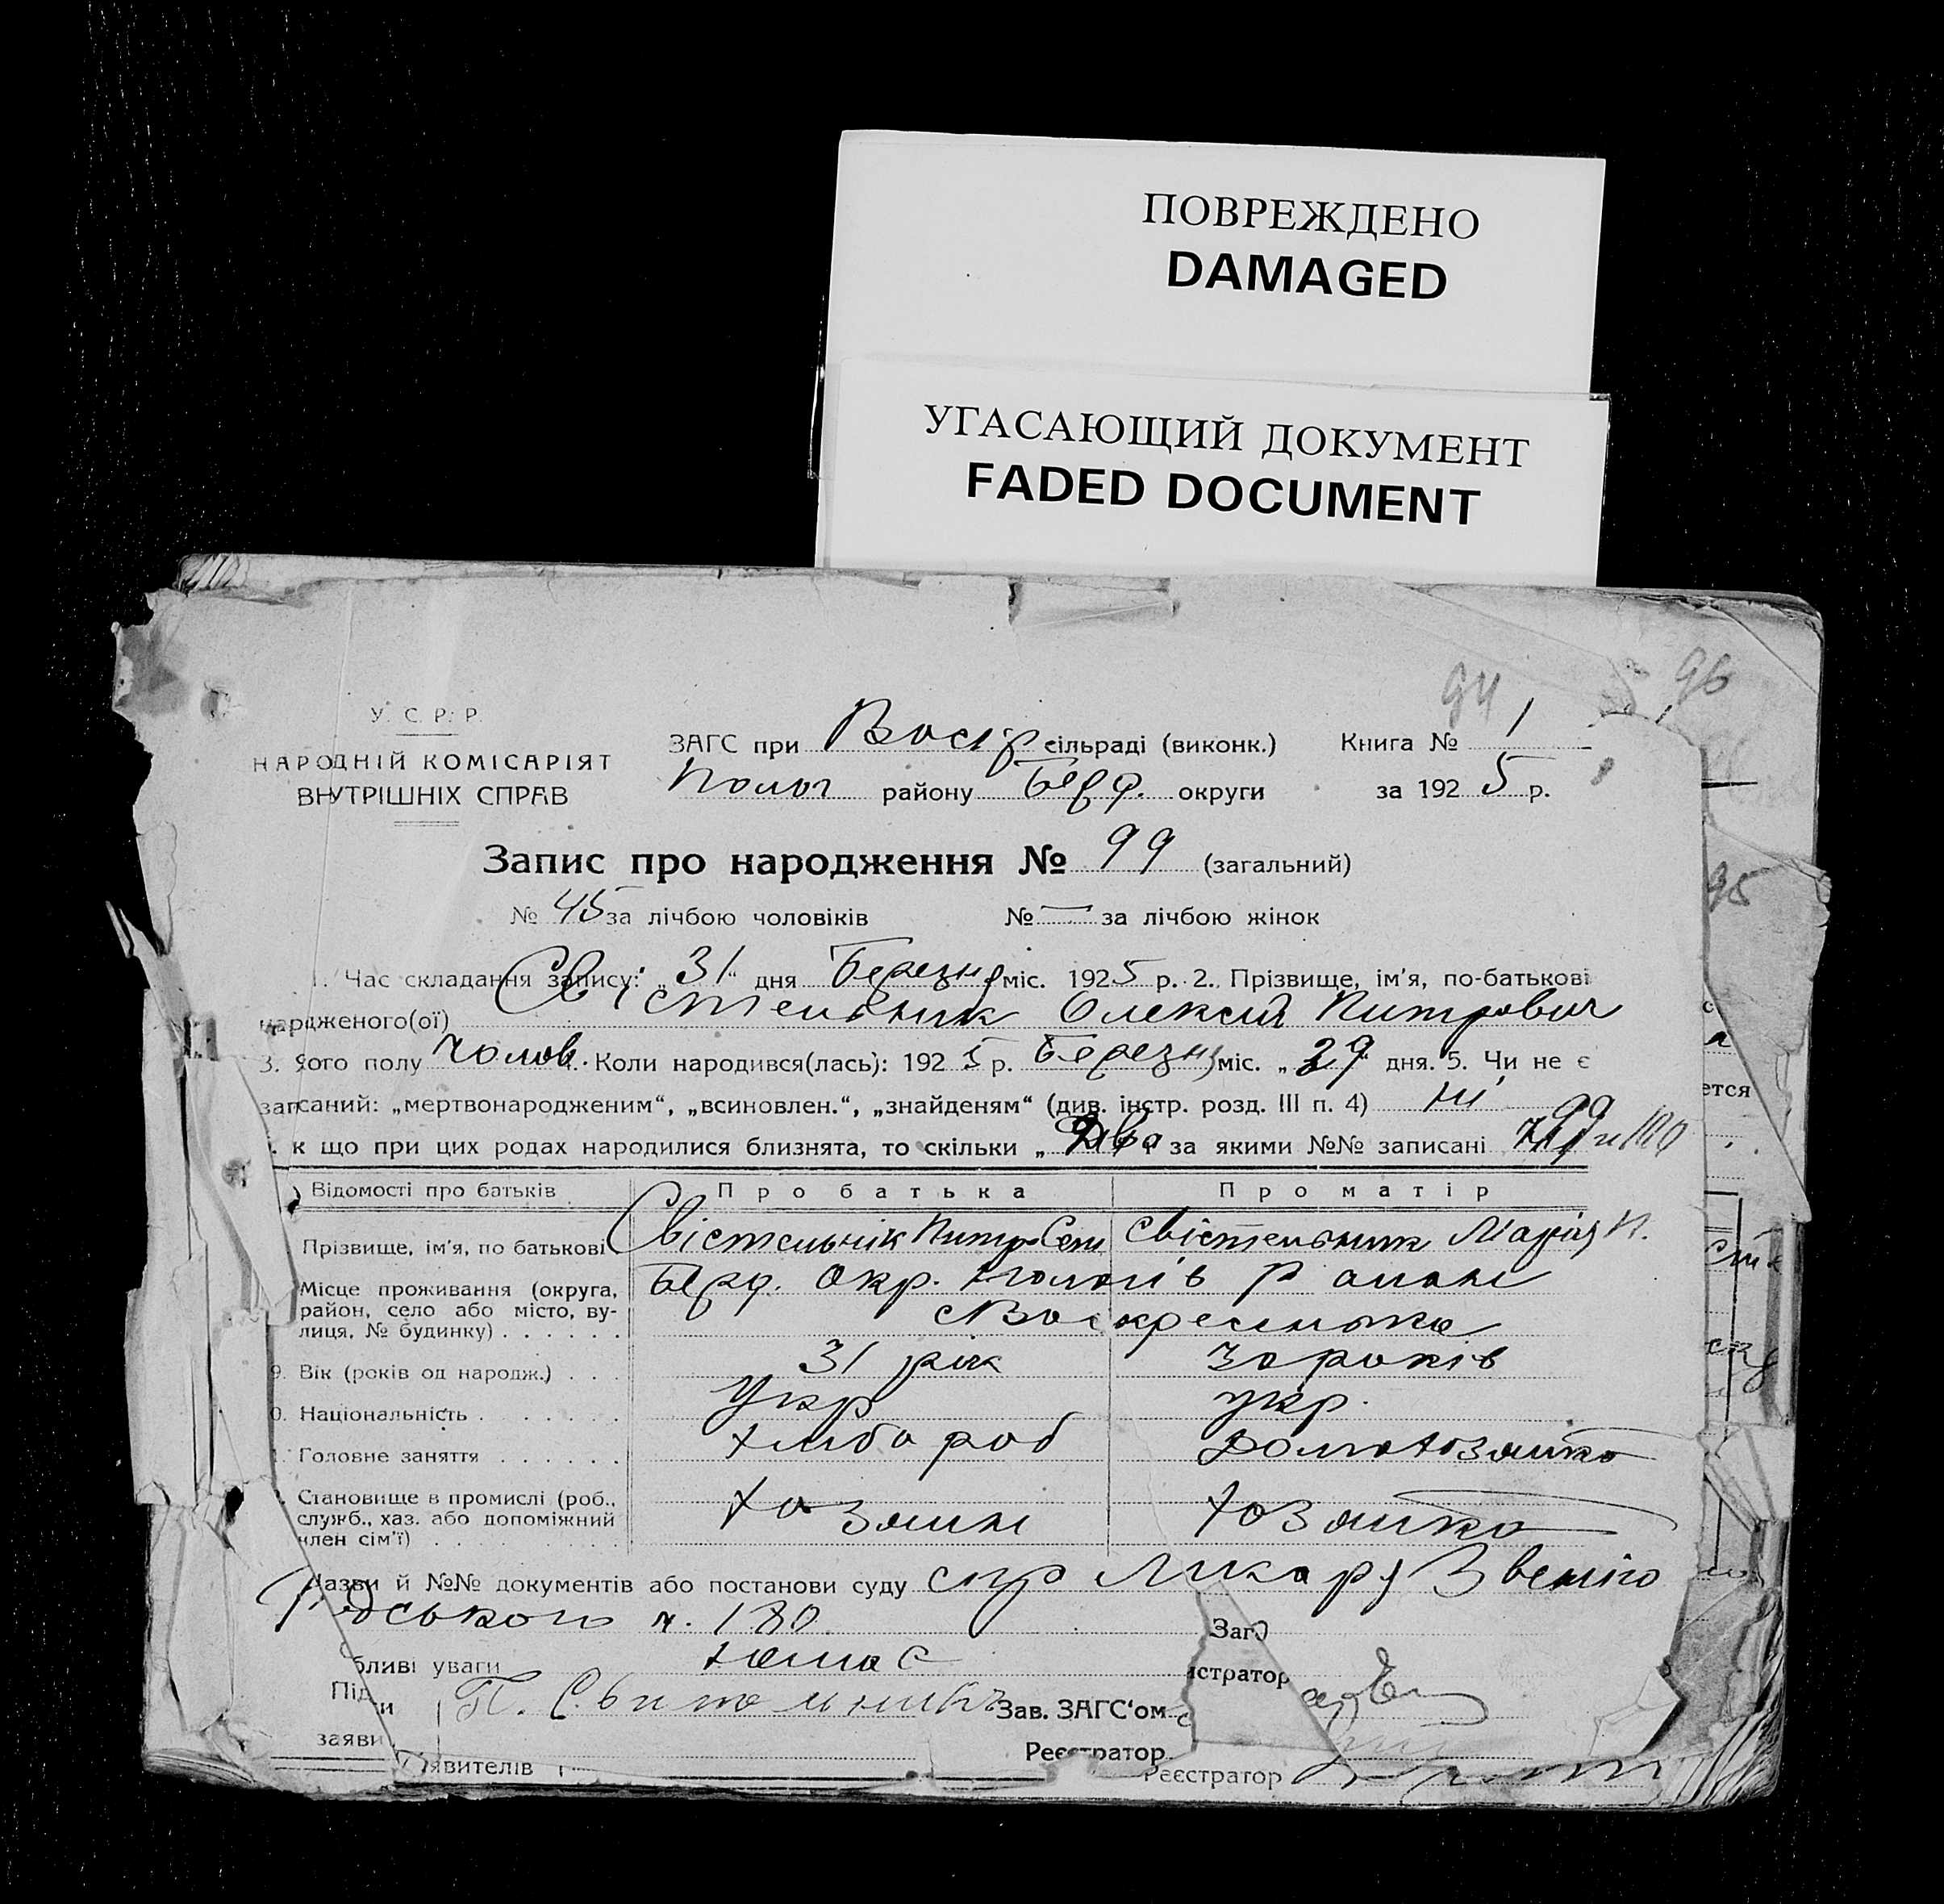 ПОВРЕЖДЕНО
DAMAGED
УГАСАЮЩИЙ ДОКУМЕНТ
FADED DOCUMENT
94
96
У. С. Р. Р.
НАРОДНІЙ КОМІСАРІЯТ
ВНУТРІШНІХ СПРАВ
ЗАГС при Воскр сільраді (виконк.) Книга № 1
Полог району Берд. округи за 1925 р.
Запис про народження № 99 (загальний)
№ 45 за лічбою чоловіків № — за лічбою жінок
95
1. Час складання запису: „31“ дня Березня міс. 1925 р. 2. Прізвище, ім'я, по-батькові
народженого(ої) Свістельник Олексій Питрович
3. Його полу чолов. Коли народився(лась): 1925 р. Березня міс. „29“ дня. 5. Чи не є
записаний: „мертвонародженим“, „всиновлен.“, „знайденям“ (див. інстр. розд. III п. 4) ні
к що при цих родах народилися близнята, то скільки „Два за якими №№ записані 99 и 100
Відомості про батьків Про батька Про матір
Прізвище, ім'я, по батькові Свістельнік Питро Сем Свістельник Марія П.
Місце проживання (округа, район, село або місто, ву-лиця, № будинку) Берд. Окр. Пологів Район
Воскресенька
9. Вік (років од народж.) 31 рік 30 років
0. Національність Укр укр.
Головне заняття хлібороб домохозяйка
Становище в промислі (роб., служб., хаз. або допоміжний член сім'ї) хозяин хозяйка
Назви й №№ документів або постанови суду спр Ликаря Звениго
родського ч. 180
бливі уваги немає
Заг
істратор
Під
и
П. Свительникъ Зав. ЗАГС'ом
заяви
Реєстратор
явителів Реєстратор